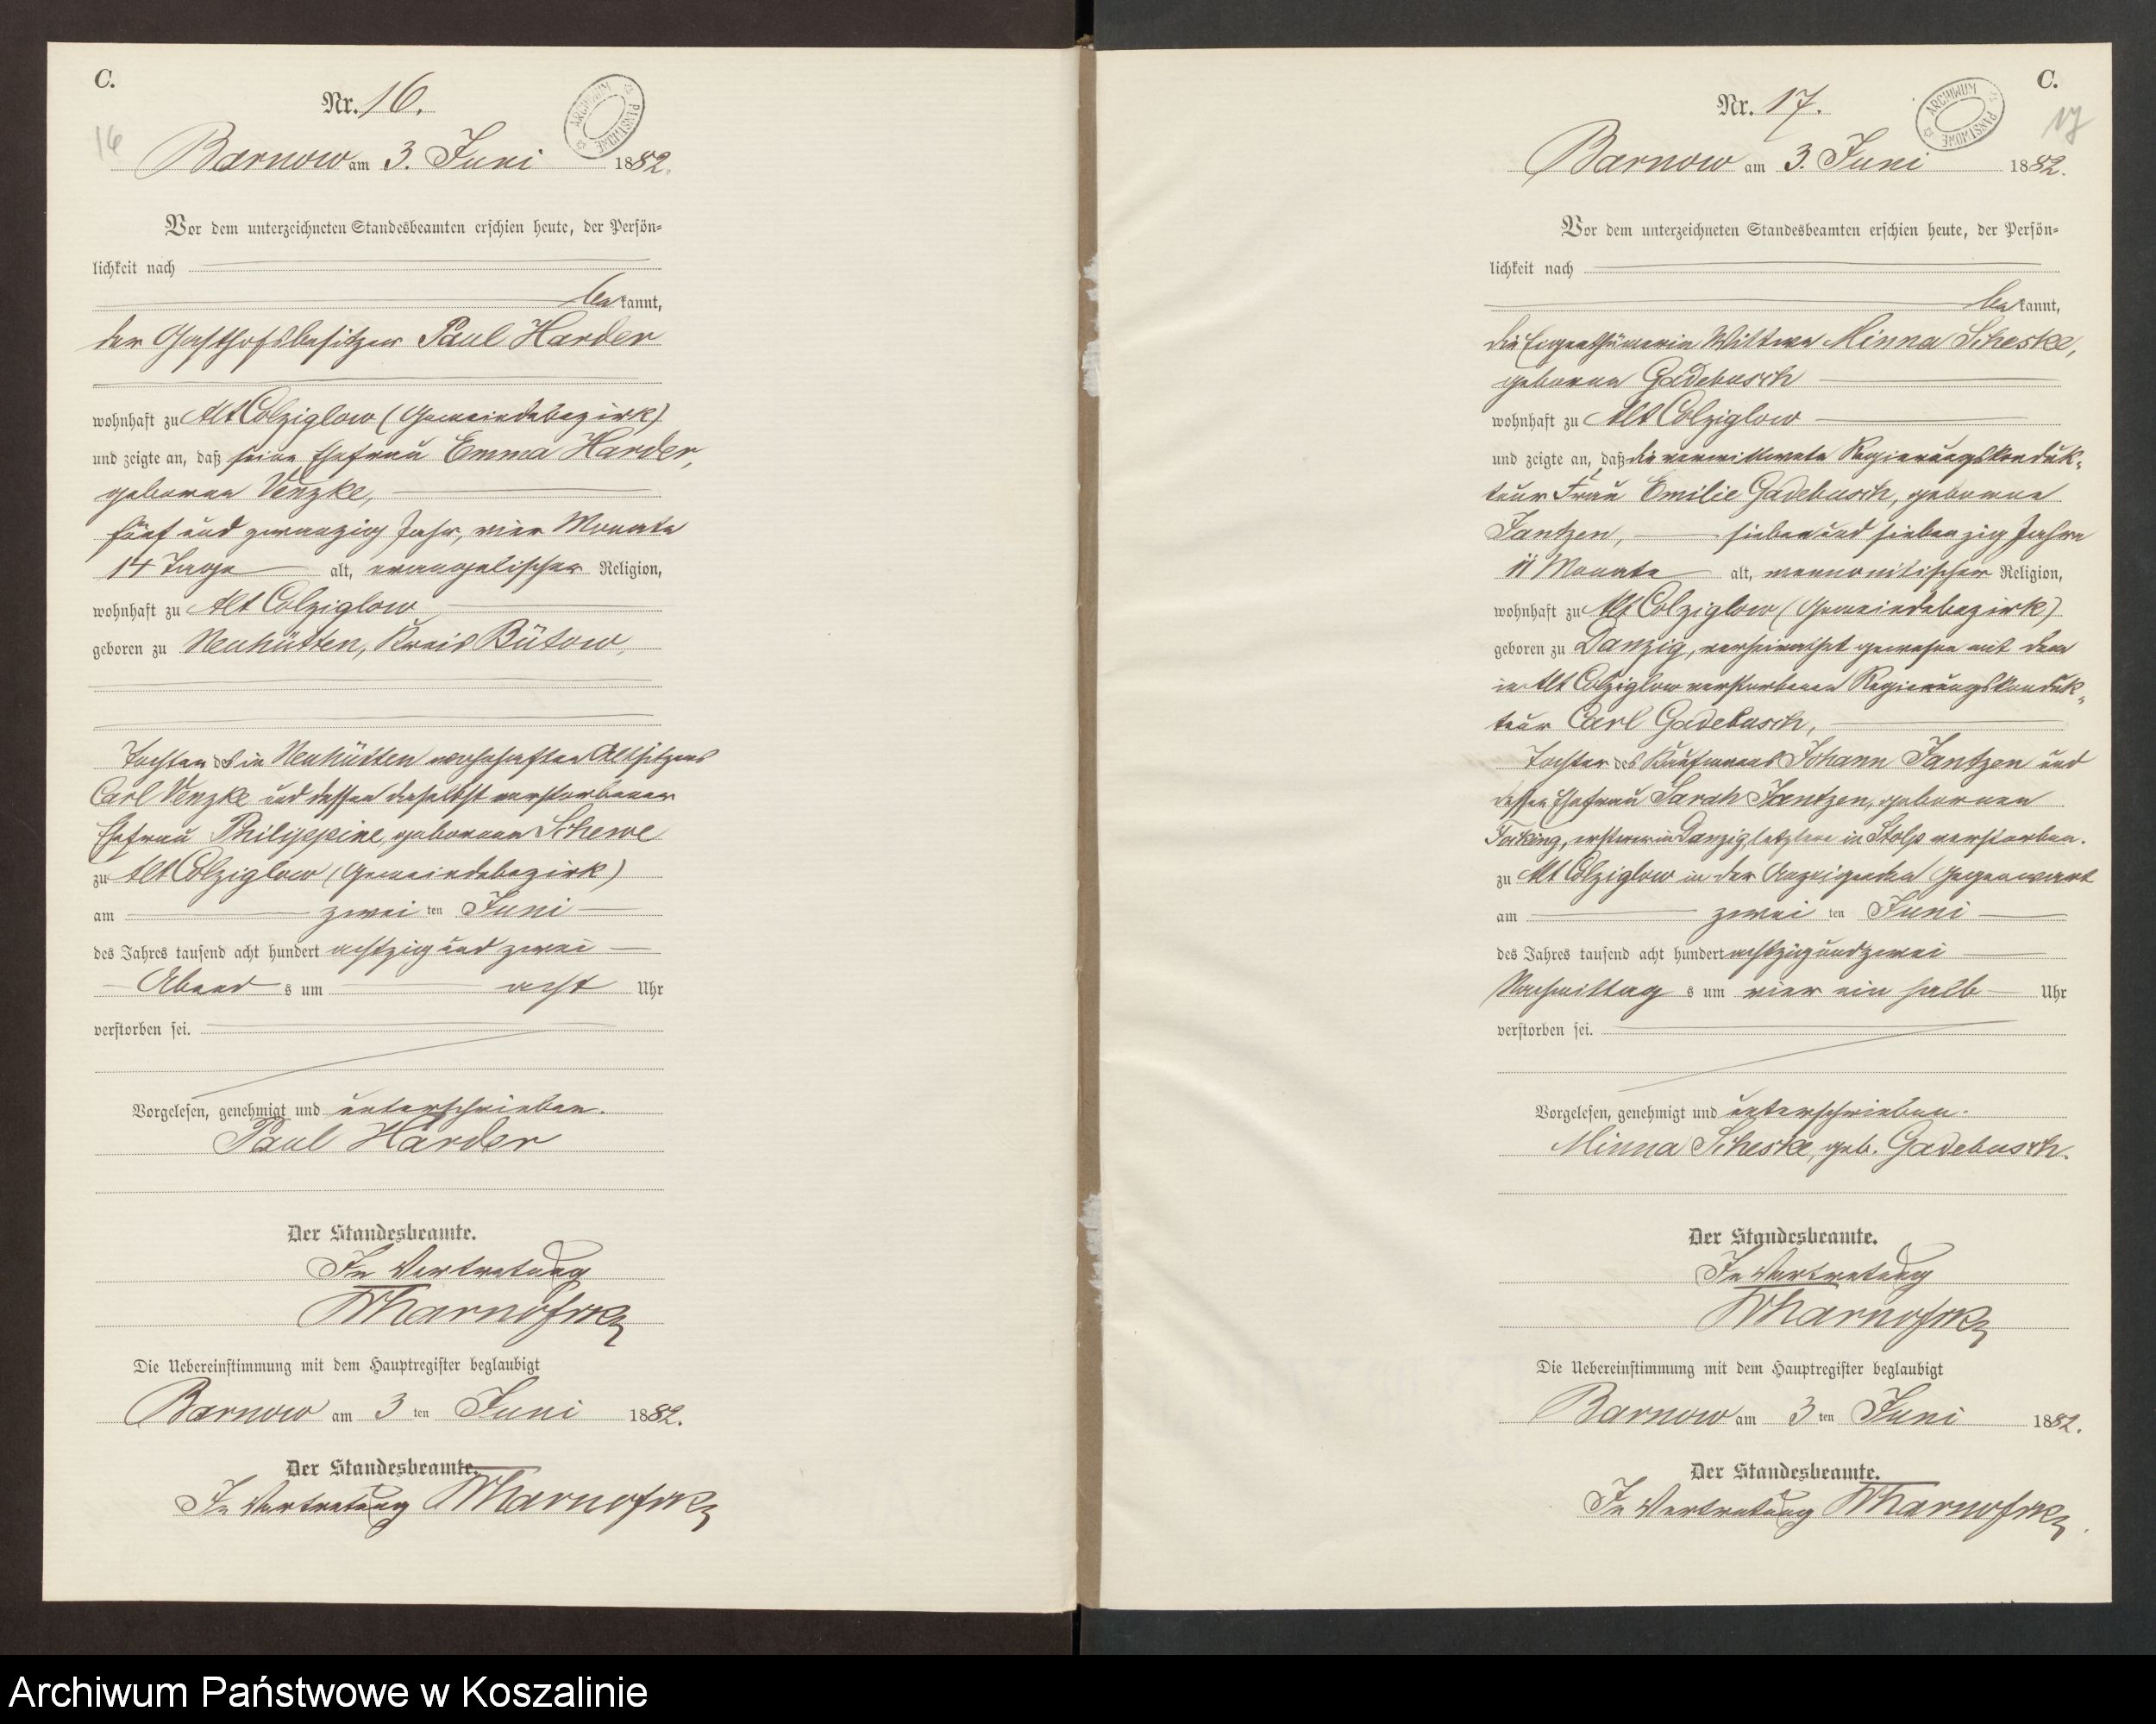 C.
Nr. 16.
ARCHIWUM PAŃSTWOWE
16
Barnow am 3. Juni 1882.
Vor dem unterzeichneten Standesbeamten erschien heute, der Persön-
lichkeit nach
bekannt,
der Gasthofsbesitzer Paul Harder
wohnhaft zu Alt Colziglow (Gemeindebezirk)
und zeigte an, daß seine Ehefrau Emma Harder,
geborene Venzke,
fünf und zwanzig Jahr, vier Monate
14 Tage alt, evangelischer Religion,
wohnhaft zu Alt Colziglow
geboren zu Neuhütten, Kreis Bütow,
Tochter des in Neuhütten wohnhaften Altsitzers
Carl Venzke und dessen daselbst verstorbenen
Ehefrau Philippine, geborenen Schewe
zu Alt Colziglow (Gemeindebezirk)
am zweiten Juni
des Jahres tausend acht hundert achtzig und zwei
Abends um acht Uhr
verstorben sei.
Vorgelesen, genehmigt und unterschrieben.
Paul Harder
Der Standesbeamte.
In Vertretung
Die Uebereinstimmung mit dem Hauptregister beglaubigt
Barnow am 3ten Juni 1882.
Der Standesbeamte.
In Vertretung
C.
Nr. 17.
ARCHIWUM PAŃSTWOWE
17
Barnow am 3. Juni 1882.
Vor dem unterzeichneten Standesbeamten erschien heute, der Persön-
lichkeit nach
bekannt,
die Eigenthümerin Wittwe Minna Scheske,
geborene Gadebusch
wohnhaft zu Alt Colziglow
und zeigte an, daß die verwittwete Regierungskonduk-
teur Frau Emilie Gadebusch, geborene
Jantzen, sieben und siebenzig Jahre
11 Monate alt, mennonitischer Religion,
wohnhaft zu Alt Colziglow (Gemeindebezirk)
geboren zu Danzig, verheirathet gewesen mit dem
in Alt Colziglow verstorbenen Regierungskonduk-
teur Carl Gadebusch,
Tochter des Kaufmanns Johann Jantzen und
dessen Ehefrau Sarah Jantzen, geborenen
erstrer in Danzig, letztere in Stolp verstorben.
zu Alt Colziglow in der Anzeigenden Gegenwart
am zweiten Juni
des Jahres tausend acht hundert achtzig und zwei
Nachmittags um vier ein halb Uhr
verstorben sei.
Vorgelesen, genehmigt und unterschrieben.
Minna Scheske, geb. Gadebusch.
Der Standesbeamte.
In Vertretung
Die Uebereinstimmung mit dem Hauptregister beglaubigt
Barnow am 3ten Juni 1882.
Der Standesbeamte.
In Vertretung
Archiwum Państwowe w Koszalinie